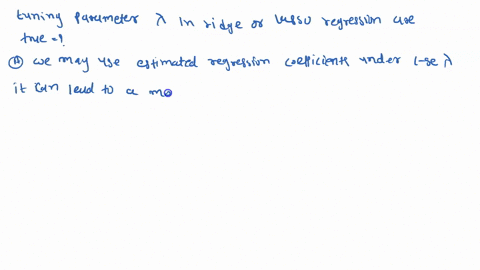 tuning parameter λ in ridge or lasso regression are
true =?
Ⓐ we may use estimated regression coefficients under 1-se λ
it can lead to a mo